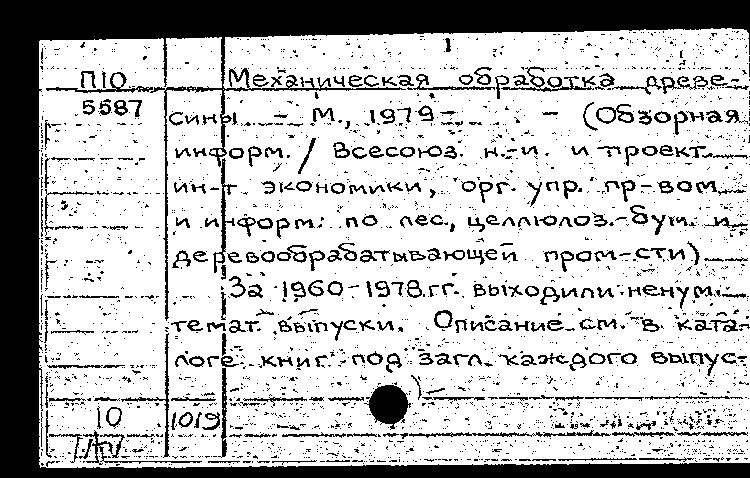 1
П10 Механическая обработка древе-
5687 сины. - М., 1979 - . - (Обзорная
информ. / Всесоюз. н.-и. и проект.
ин-т экономики, орг. упр. пр-вом
и информ. по лес., целлюлоз.-бум. и
деревообрабатывающей пром-сти)
За 1960-1978 гг. выходили ненум.
темат. выпуски. Описание см. в ката-
логе книг под загл. каждого выпус-
10 1019